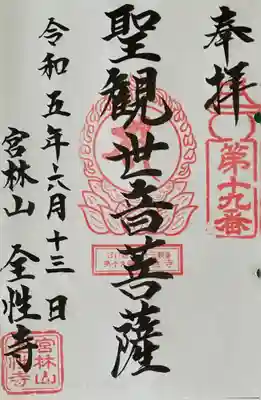 奉拝
第十九番
聖観世音菩薩
令和五年六月十三日
宮林山 全性寺
宮林山
全性寺